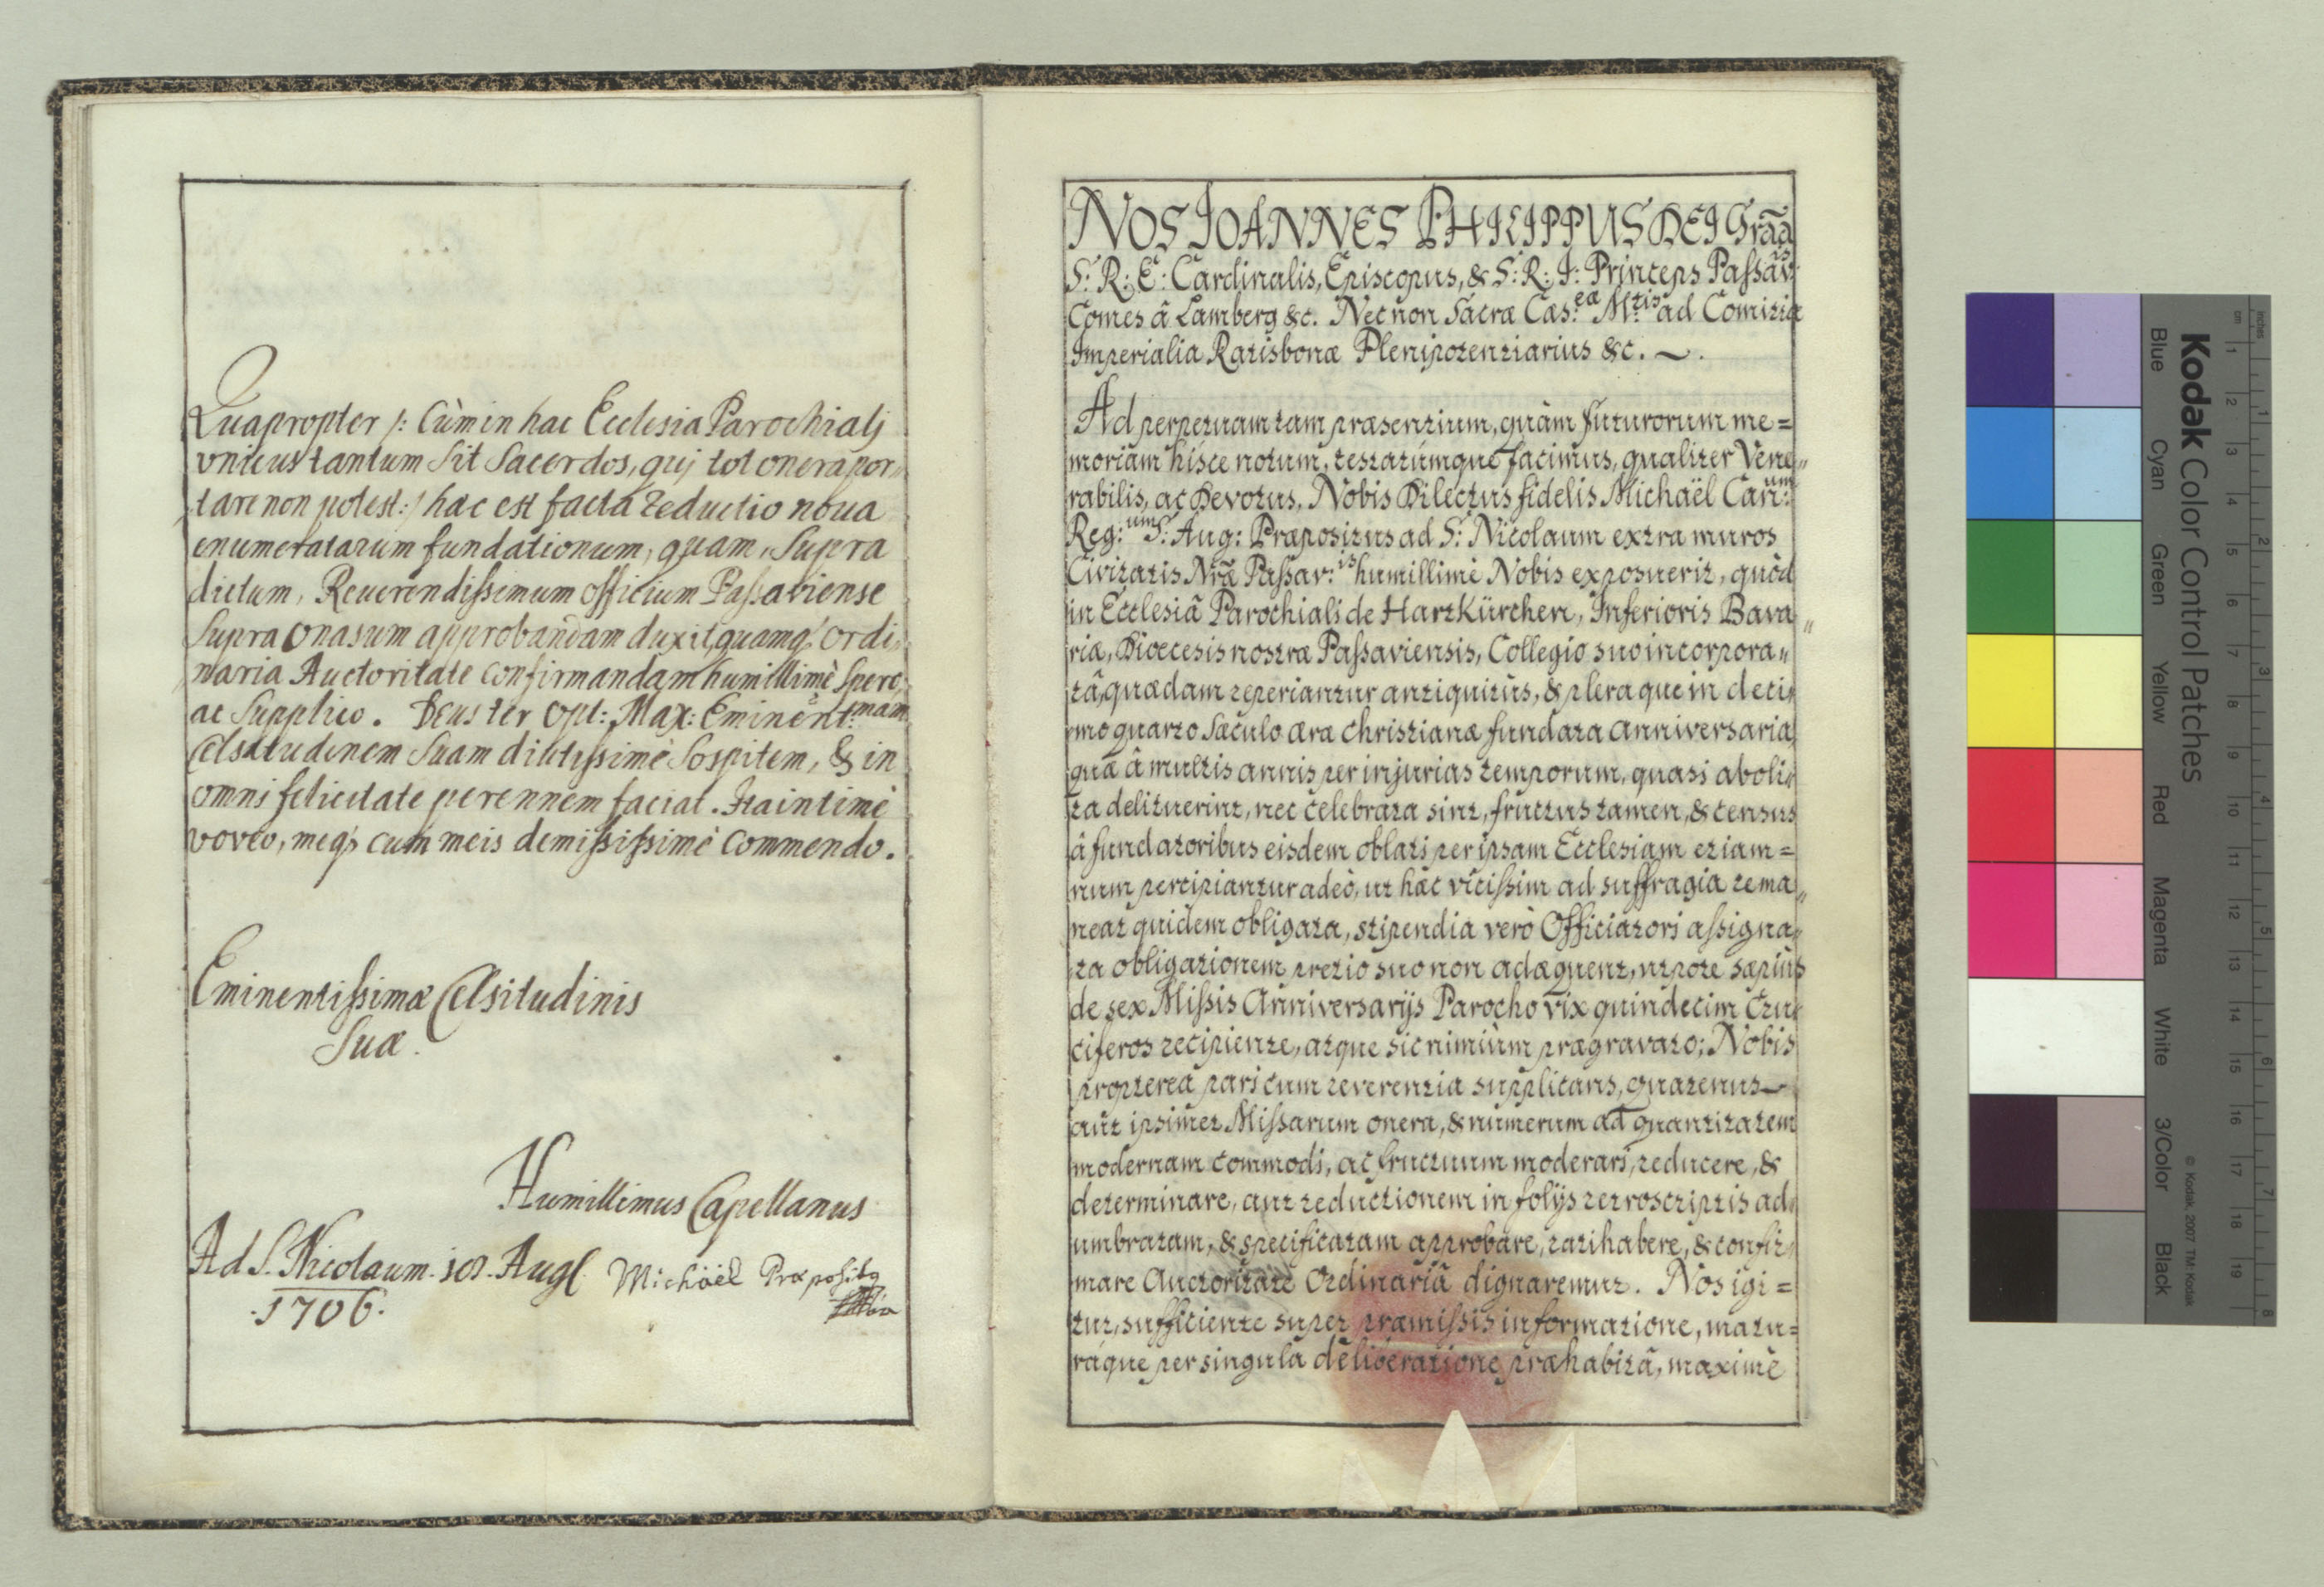 Quapropter /: Cùm in hac Ecclesia Parochialj
vnicus tantum sit Sacerdos, quj tot onera por„
tare non potest :/ hac est facta reductio noua
enumeratarum fundationum, quam, Supra
dictum, Reuerendissimum Officium Passaviense
Supra approbandam duxit, quamq3 ordi„
naria Auctoritate confirmandam humillimè spero,
ac Supplico. Deus ter Opt: Max: Eminent:mam
Celsitudinem Suam diutissimè Sospitem, & in
omni felicitate perennem faciat. Ita intimè
voveo, meq3 cum meis demississimè commendo.
Eminentissimæ Celsitudinis
Suæ.
Humillimus Capellanus
Ad S. Nicolaum. 10. Aug. Michäel Præposit9
1706.
NOS JOANNES PHILIPPUS DEI Grãa
S: R: E: Cardinalis, Episcopus, & S: R: I: Princeps Passav:is
Comes â Lamberg &c. Necnon Sacræ Cæs:eæ M:tis ad Comitia
Imperialia Ratisbonæ Plenipotentiarius &c. ~.
Ad perpetuam tam præsentium, quàm futurorum me=
moriam hisce notum, testatúmque facimus, qualiter Vene„
rabilis, ac Devotus, Nobis Dilectus fidelis Michaël Can:um
Reg:um S: Aug: Præpositus ad S: Nicolaum extra muros
Civitatis Nr̃æ Passav:is humillimè Nobis exposuerit, quòd
in Ecclesiâ Parochiali de Hartkürchen, Inferioris Bava„
riæ, Diœcesis nostræ Passaviensis, Collegio suo incorpora„
tâ, quædam reperiantur antiquitùs, & pleraque in deci„
mo quarto Sæculo æræ christianæ fundata Anniversaria,
quæ â multis annis per injurias temporum, quasi aboli„
ta delituerint, nec celebrata sint, fructus tamen, & census
â fundatoribus eisdem oblati per ipsam Ecclesiam etiam=
num percipiantur adeò, ut hæc vicissim ad suffragia rema„
neat quidem obligata, stipendia verò Officiatori assigna„
ta obligationem pretio suo non adæquent, utpote sæpiùs
de sex Missis Anniversarijs Parocho vix quindecim Cru„
ciferos recipiente, atque sic nimiùm prægravato; Nobis
proptereà pari cum reverentia supplicans, quatenus
aut ipsimet Missarum onera, & numerum ad quantitatem
modernam commodi, ac fructuum moderari, reducere, &
determinare, aut reductionem in folijs retroscriptis ad„
umbratam, & specificatam approbare, ratihabere, & confir„
mare Auctoritate Ordinariâ dignaremur. Nos igi=
tur, sufficiente super præmissis informatione, matu=
ráque per singula deliberatione præhabitâ, maximè
Kodak Color Control Patches
© Kodak, 2007 TM: Kodak
Blue Cyan Green Yellow Red Magenta White 3/Color Black
cm 1 2 3 4 5 6 7 8 9 10 11 12 13 14 15 16 17 18 19
inches 1 2 3 4 5 6 7 8